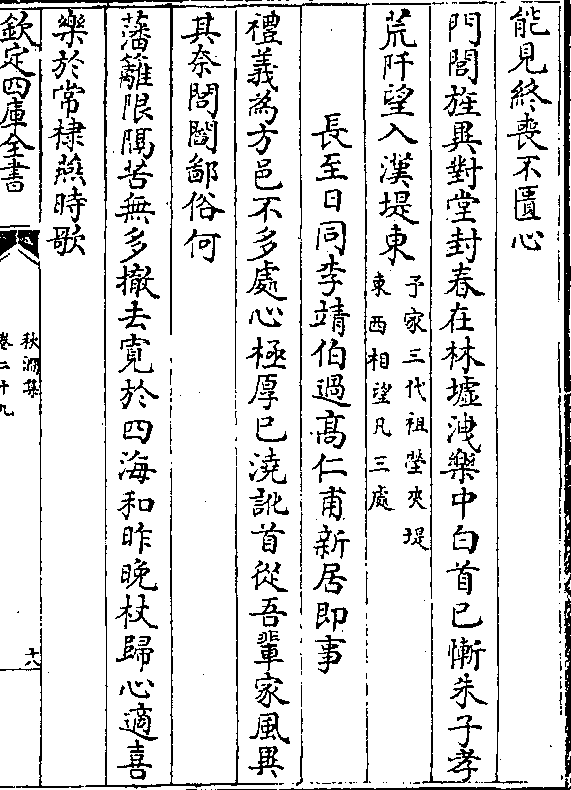 能見終喪不匱心
門閭旌異對堂封春在林墟洩樂中白首已慚朱子孝
荒阡望入漢堤東
予家三代祖塋夾堤
東西相望凡三處
長至日同李靖伯過髙仁甫新居即事
禮義為方邑不多處心極厚已澆訛首從吾輩家風異
其奈閭閻鄙俗何
藩籬限隔苦無多撤去寛於四海和昨晚杖歸心適喜
樂於常棣燕時歌
欽定四庫全書
秋澗集
卷二十九
十八